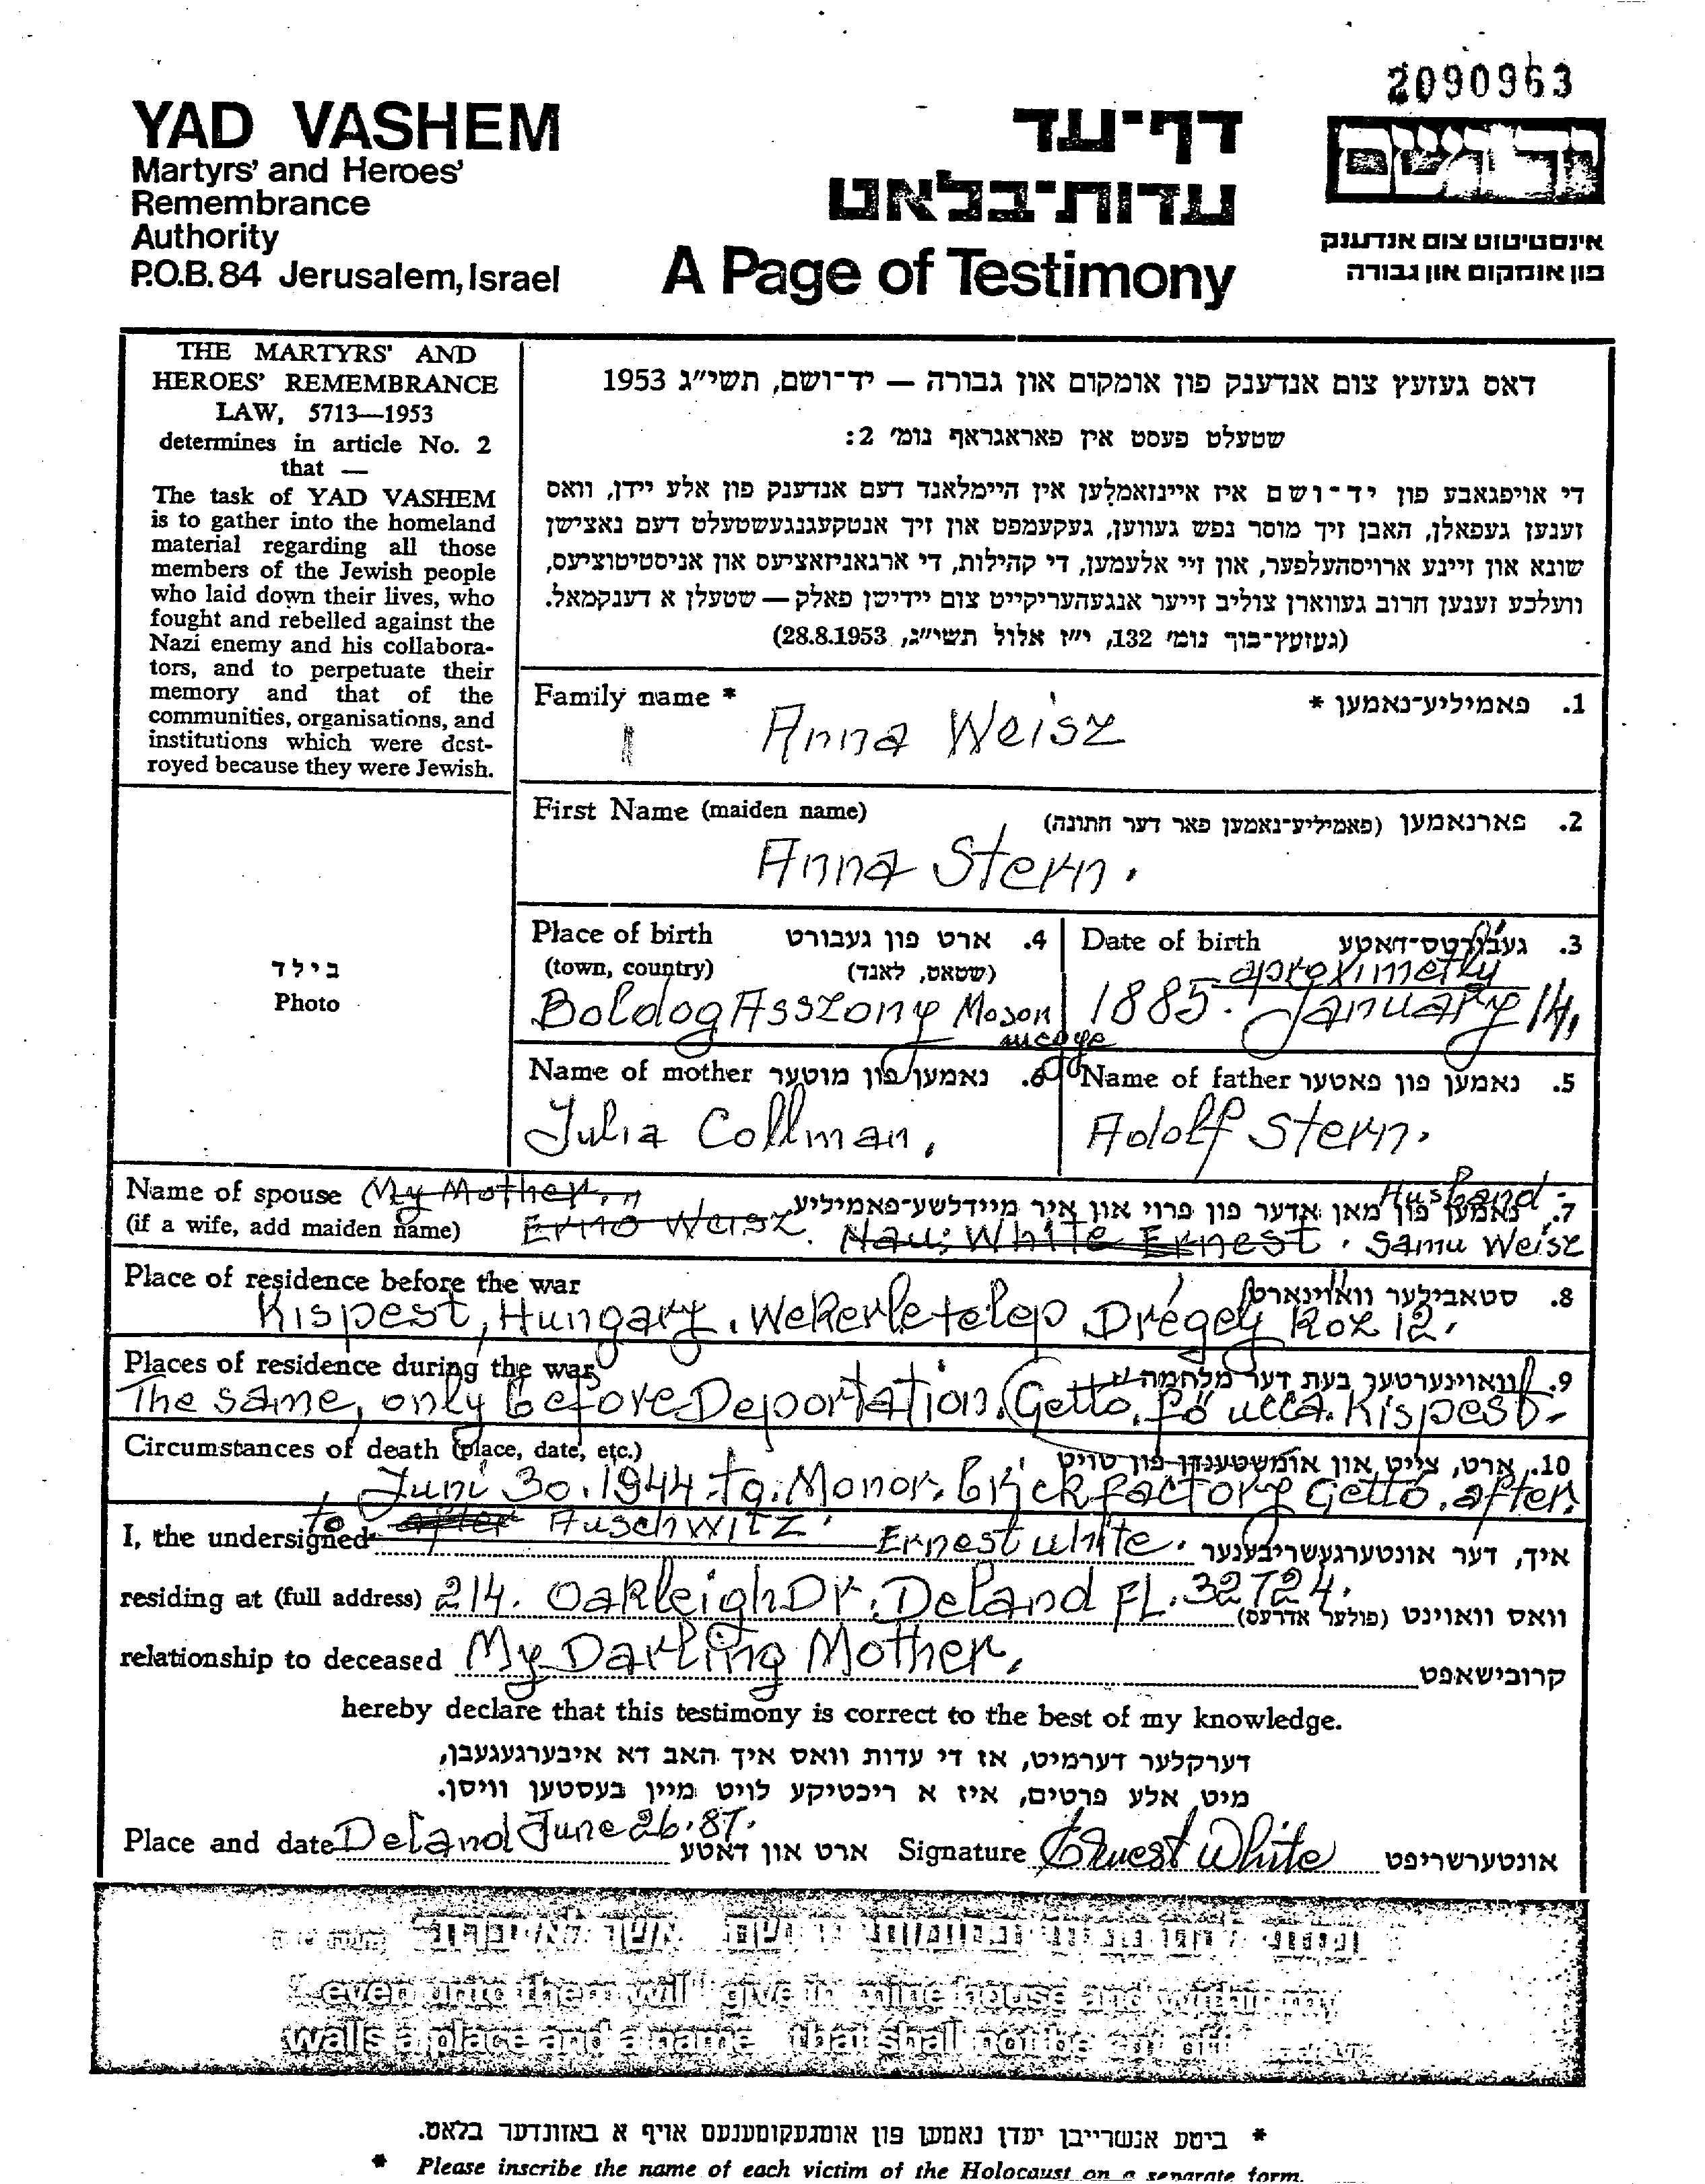 2090963
YAD VASHEM
Martyrs' and Heroes'
Remembrance
Authority
P.O.B. 84 Jerusalem, Israel
דף־עד
עדות־בלאט
A Page of Testimony
יד ושם
אינסטיטוט צום אנדענק
פון אומקום און גבורה
THE MARTYRS' AND
HEROES' REMEMBRANCE
LAW, 5713—1953
determines in article No. 2
that —
The task of YAD VASHEM
is to gather into the homeland
material regarding all those
members of the Jewish people
who laid down their lives, who
fought and rebelled against the
Nazi enemy and his collabora-
tors, and to perpetuate their
memory and that of the
communities, organisations, and
institutions which were dest-
royed because they were Jewish.
דאס געזעץ צום אנדענק פון אומקום און גבורה — יד־ושם, תשי״ג 1953
שטעלט פעסט אין פאראגראף נומ׳ 2:
די אויפגאבע פון יד־ושם איז איינזאמלען אין היימלאנד דעם אנדענק פון אלע יידן, וואס
זענען געפאלן, האבן זיך מוסר נפש געווען, געקעמפט און זיך אנטקעגנגעשטעלט דעם נאצישן
שונא און זיינע ארויסהעלפער, און זיי אלעמען, די קהילות, די ארגאניזאציעס און אניסטיטוציעס,
וועלכע זענען חרוב געווארן צוליב זייער אנגעהעריקייט צום יידישן פאלק — שטעלן א דענקמאל.
(געזעץ־בוך נומ׳ 132, י״ז אלול תשי״ג, 28.8.1953)
Family name * פאמיליע־נאמען * .1
Anna Weisz
First Name (maiden name) פארנאמען (פאמיליע־נאמען פאר דער חתונה) .2
Anna Stern.
בילד
Photo
Place of birth ארט פון געבורט .4
(town, country) (שטאט, לאנד)
BoldogAsszony Moson
megye
Date of birth געבורטס־דאטע .3
aproximetly
1885. January 14,
Name of mother נאמען פון מוטער .6
Julia Collman,
Name of father נאמען פון פאטער .5
Adolf Stern.
Name of spouse (My Mother,, נאמען פון מאן אדער פון פרוי און איר מיידלשע־פאמיליע .7 Husband:
(if a wife, add maiden name) Erno Weisz. Nau; White Ernest. Samu Weisz
Place of residence before the war סטאבילער וואוינארט .8
Kispest, Hungary. Wekerletelep Drégely Köz 12.
Places of residence during the war וואוינערטער בעת דער מלחמה .9
The same, only before Deportation. Getto, Fö ucca. Kispest.
Circumstances of death (place, date, etc.) ארט, צייט און אומשטענדן פון טויט .10
Juni 30. 1944. to. Monor. brickfactory Getto. after.
to after Auschwitz.
I, the undersigned Ernest White. איך, דער אונטערגעשריבענער
residing at (full address) 214. Oakleigh Dr. Deland FL. 32724. וואס וואוינט (פולער אדרעס)
relationship to deceased My Darling Mother, קרובישאפט
hereby declare that this testimony is correct to the best of my knowledge.
דערקלער דערמיט, אז די עדות וואס איך האב דא איבערגעגעבן,
מיט אלע פרטים, איז א ריכטיקע לויט מיין בעסטען וויסן.
Place and date Deland June 26. 87. ארט און דאטע Signature Ernest White אונטערשריפט
"even unto them will I give in mine house and within my
walls a place and a name that shall not be cut off
* ביטע אנשרייבן יעדן נאמען פון אומגעקומענעם אויף א באזונדער בלאט.
* Please inscribe the name of each victim of the Holocaust on a separate form.